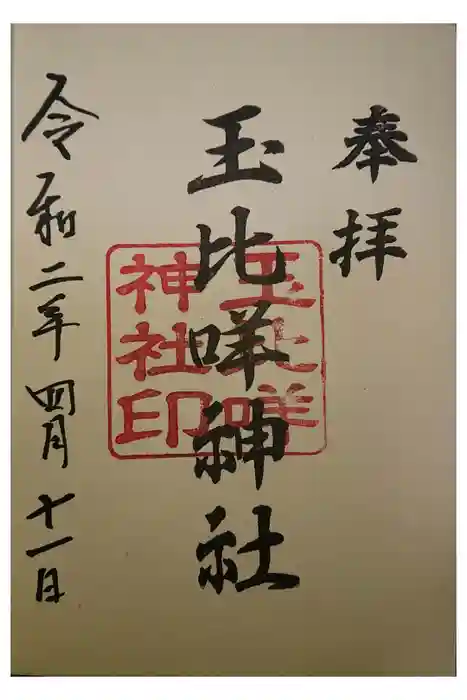 奉拝
玉比咩神社
玉比咩
神社印
令和二年四月十一日